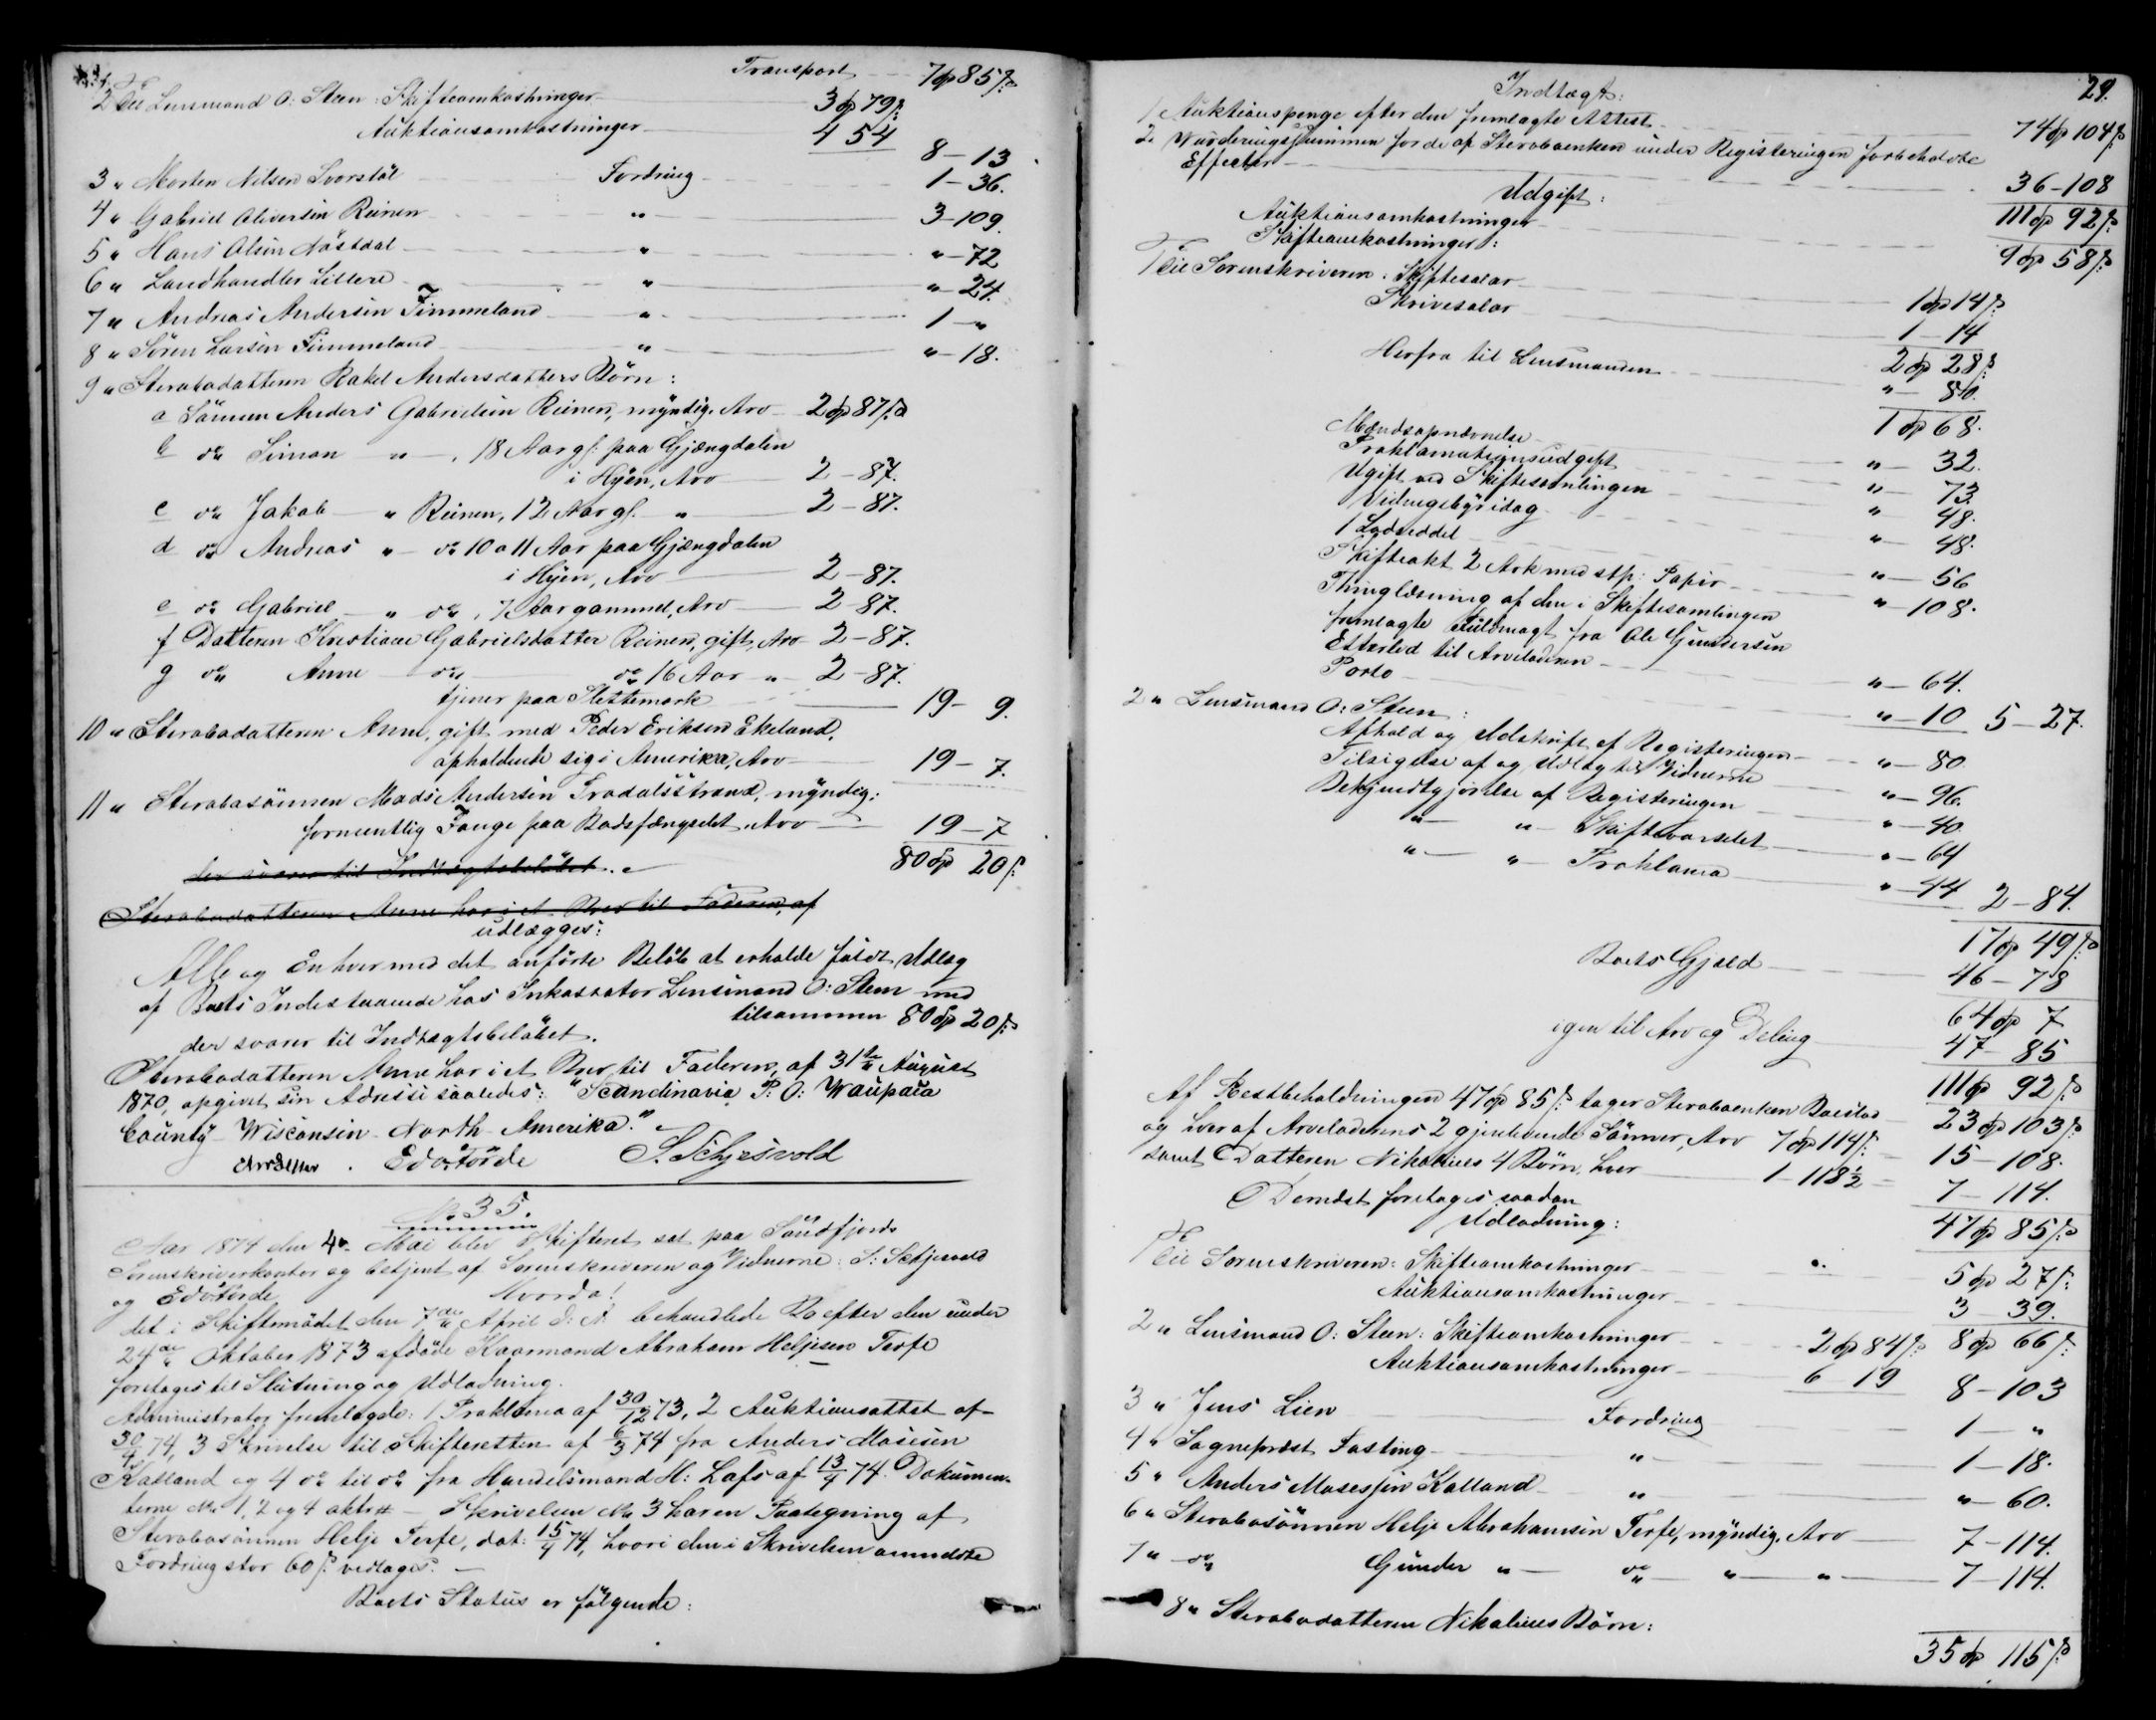 Transport 7 Sp 85 ß
2 Til Lensmand O: Steen: Skifteomkostninger 3 Sp 79 ß:
Auktionsomkostninger 4 54 8 - 13.
3 " Morten Nilsen Svorstøl Fordring 1 - 36.
4 " Gabriel Oliversen Reinen " 3 - 109.
5 " Hans Olsen Nøstdal " " - 72
6 " Landhandler Lillere " " - 24.
7 " Andreas Andersen Timmeland " 1 - "
8 " Søren Larsen Timmeland " " - 18.
9 " Sterbodatteren Rakel Andersdatters Børn:
a Sønnen Anders Gabrielsen Reinen, myndig, Arv 2 Sp 87 ß
b do Simon " , 18 Aar gl. paa Gjengdalen
i Hyen, Arv 2 - 87.
c do Jakob " Reinen, 12 Aar gl. " 2 - 87.
d do Andreas " do 10 a 11 Aar paa Gjengdalen
i Hyen, Arv 2 - 87.
e do Gabriel " do, 7 Aar gammel, Arv 2 - 87.
f Datteren Kristiane Gabrielsdatter Reinen, gift, Arv 2 - 87.
g do Anne do do 16 Aar " 2 - 87.
tjener paa Slettemark 19 - 9.
10 " Sterbodatteren Anne, gift med Peder Eriksen Ekeland,
opholdende sig i Amerika, Arv 19 - 7.
11 " Sterbosønnen Mads Andersen Fradalsstrand, myndig,
formentlig Fange paa Bodsfængselet. Arv 19 - 7
der svarer til Indtægtsbeløbet. 80 Sp 20 ß:
Sterbodatteren Anne har i et Brev til Faderen, af
udlægges:
Alle og Enhver med det anførte Beløb at erholde fuldt Udlæg
af Boets Indestaaende hos Inkassator Lensmand O: Steen med
tilsammen 80 Sp 20 ß:
der svarer til Indtægtsbeløbet.
Sterbodatteren Anne har i et Brev til Faderen, af 31te August
1870, opgivet sin Adresse saaledes: "Scandinavia P: O: Waupaca
County - Wisconsin - North - Amerika." -
Ed. Førde S. Schjesvold
No 35.
Aar 1874 den 4de Mai blev Skifteret sat paa Søndfjords
Sorenskriverkontor og betjent af Sorenskriveren og Vidnerne: S: Schjesvold
og Ed. Førde. Hvorda!
det i Skiftemødet den 7de April d: A. behandlede Bo efter den under
24de Oktober 1873 afdøde Kaarmand Abraham Heljesen Terfe
foretoges til Slutning og Udlodning.
Administrator fremlagde: 1 Proklama af 30/12 73, 2 Auktionsattest af
30/4 74, 3 Skrivelse til Skifteretten af 6/3 74 fra Anders Mosesen
Kalland og 4 do til do fra Handelsmand H: Lofs af 13/4 74. Dokumen-
terne No 1, 2 og 4 - Skrivelsen No 3 har en Paategning af
Sterbosønnen Helje Terfe, dat: 15/4 74, hvori den i Skrivelsen anmeldte
Fordring stor 60 ß vedtages. -
Boets Status er følgende:
29.
Indtægt:
1 Auktionspenge efter den fremlagte Attest 74 Sp 104 ß
2. Vurderingssummen for de af Sterboenken under Registeringen forbeholdte
Effecter 36 - 108
111 Sp 92 ß:
Udgift:
Auktionsomkostninger 9 Sp 58 ß:
Skifteomkostninger:
1 Til Sorenskriveren: Skiftesalær 1 Sp 14 ß:
Skrivesalær 1 - 14
2 Sp 28 ß:
Herfra til Lensmanden " - 80.
1 Sp 68.
Mændsopnævnelse " - 32.
Proklamationsudgift " - 73.
Udgift ved Skiftesamlingen " 48.
Vidnegebyr idag " - 48.
1 Lodseddel " - 56
Skifteakt 2 Ark med stp: Papir " - 108.
Thinglæsning af den i Skiftesamlingen
fremlagte Fuldmagt fra Ole Gundersen
Efterled til Arveladeren " - 64.
Porto " - 10 5 - 27.
2 " Lensmand O: Steen:
Afhold og Udskrift af Registeringen " - 80
Tilsigelse af og Udlæg til Vidnerne " - 96.
Bekjendtgjørelse af Registeringen " - 40
" " Skiftevarselet " - 64
" " Proklama " - 44 2 - 84.
17 Sp 49 ß:
Boets Gjæld 46 - 78
64 Sp 7
igjen til Arv og Deling 47 - 85
111 Sp 92 ß
Af Restbeholdningen 47 Sp 85 ß: tager Sterboenken Boeslod 23 Sp 103 ß
og hver af Arveladerens 2 gjenlevende Sønner, Arv 7 Sp 114 ß. 15 - 108.
samt Datteren Nikolines 4 Børn, hver 1 - 118 ½ 7 - 114.
47 Sp 85 ß
Dernæst foretoges saadan
Udlodning:
1 Til Sorenskriveren: Skifteomkostninger 5 Sp 27 ß:
Auktionsomkostninger 3 - 39.
8 Sp 66 ß:
2 " Lensmand O: Steen: Skifteomkostninger 2 Sp 84 ß
Auktionsomkostninger 6 - 19 8 - 103
3 " Jens Lien Fordring 1 - "
4 " Sognepræst Fasting " 1 - 18.
5 " Anders Mosessen Kalland " " - 60.
6 " Sterbosønnen Helje Abrahamsen Terfe, myndig, Arv 7 - 114.
7 " do Gunder " do " " 7 - 114.
8 " Sterbodatteren Nikolines Børn:
35 Sp 115 ß